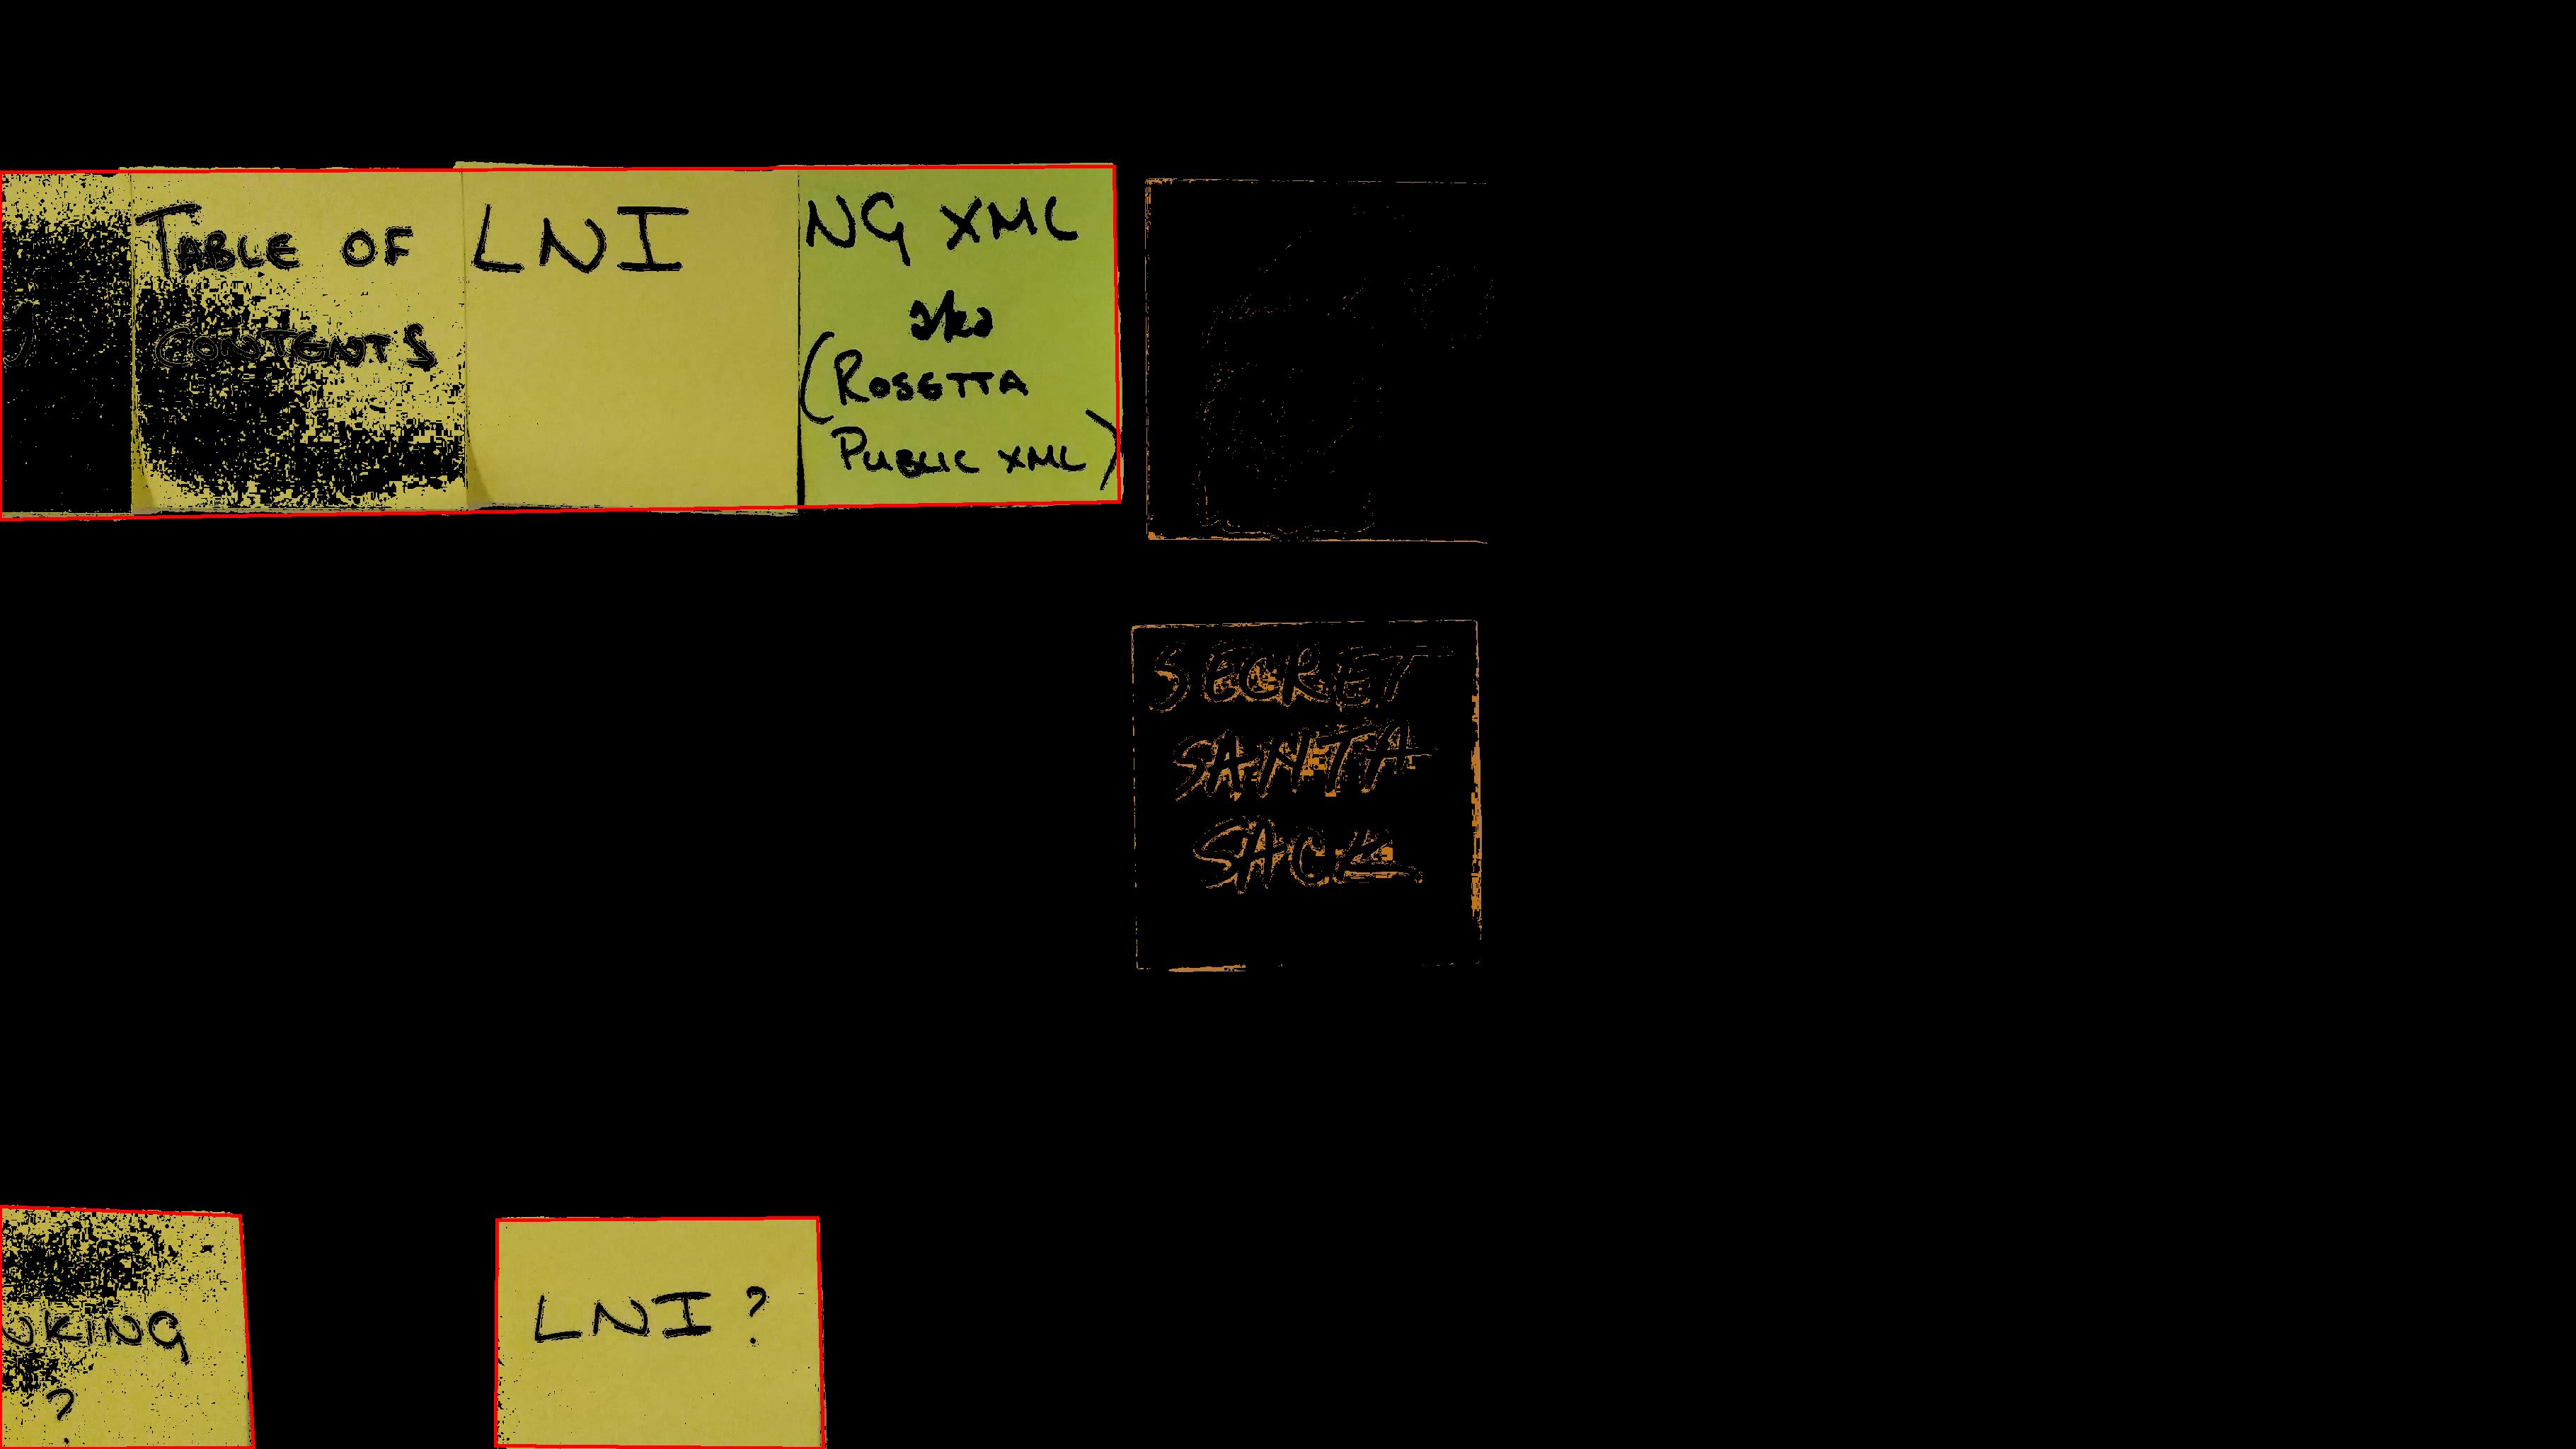 TABLE OF
CONTENTS
LNI
NG XML
aka
(ROSETTA
PUBLIC XML)
SECRET
SANTA
SACK
UKING
?
LNI?